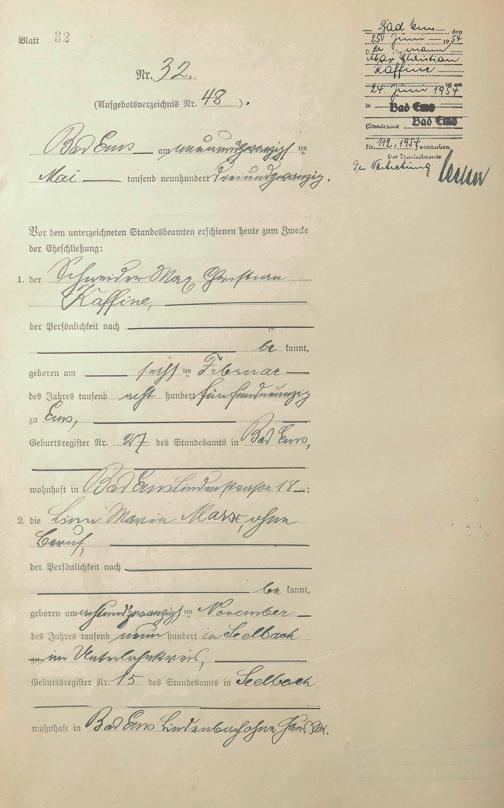 Blatt 32
Nr. 32.
(Aufgebotsverzeichnis Nr. 48 ).
Bad Ems am neunundzwanzigsten
Mai tausend neunhundert dreiundzwanzig.
Vor dem unterzeichneten Standesbeamten erschienen heute zum Zwecke
der Eheschließung:
1. der Schneider Max Christian
Kaffine,
der Persönlichkeit nach
be kannt,
geboren am sechsten Februar
des Jahres tausend acht hundert fünfundneunzig
zu Ems,
Geburtsregister Nr. 27 des Standesamts in Bad Ems,
wohnhaft in Bad Ems Lindenstraße 18;
2. die Lina Maria Marx, ohne
Beruf,
der Persönlichkeit nach
be kannt,
geboren am achtundzwanzigsten November
des Jahres tausend neun hundert in Seelbach
im Unterlahnkreis,
Geburtsregister Nr. 15 des Standesamts in Seelbach
wohnhaft in Bad Ems Lindenbach ohne Haus Nr.
Bad Ems, den
25. Juni 1954
Der Ehemann
Max Christian
Kaffine
ist am
24. Juni 1954
in Bad Ems
Standesamt Bad Ems
Nr. 112, 1954 verstorben.
Der Standesbeamte
In Vertretung